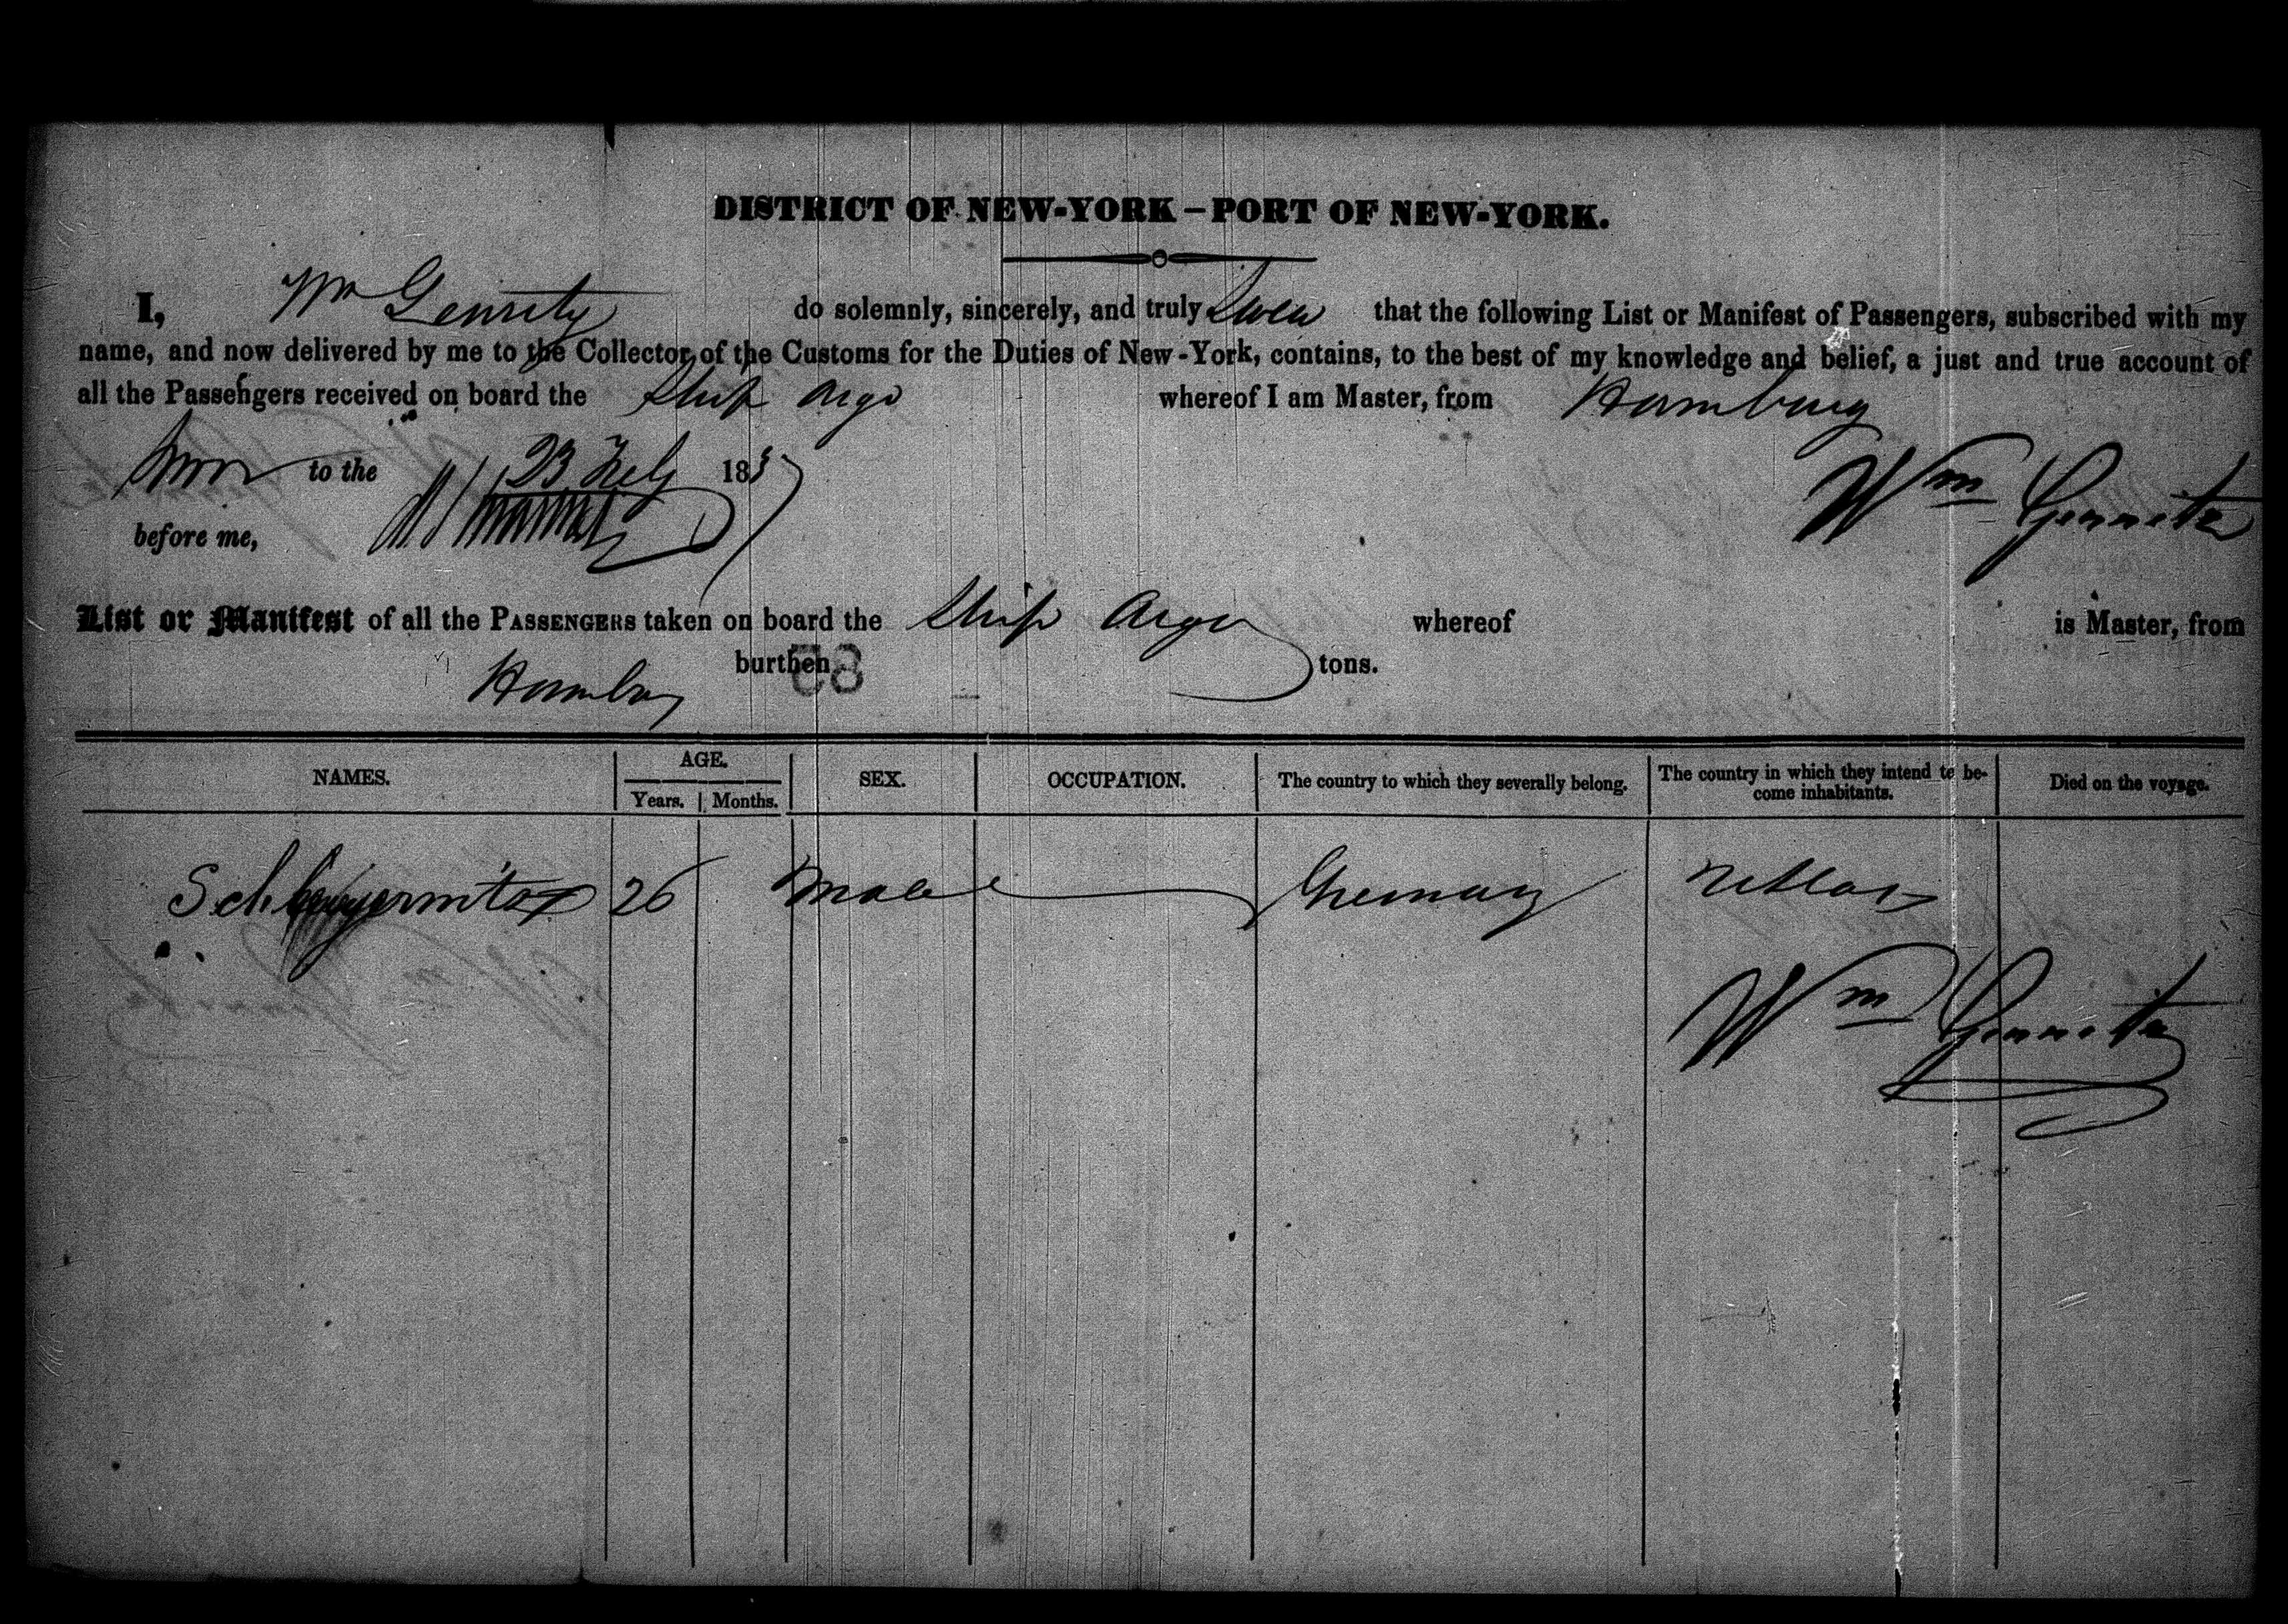 DISTRICT OF NEW-YORK – PORT OF NEW-YORK.
I, Wm Gerrity do solemnly, sincerely, and truly Swea that the following List or Manifest of Passengers, subscribed with my
name, and now delivered by me to the Collector of the Customs for the Duties of New-York, contains, to the best of my knowledge and belief, a just and true account of
all the Passengers received on board the Ship Argo whereof I am Master, from Hamburg
Sworn to the 23 Feby 183 Wm Gerrity
before me,
List or Manifest of all the PASSENGERS taken on board the Ship Argo whereof is Master, from
Hamburg burthen 58 tons.
NAMES. AGE. SEX. OCCUPATION. The country to which they severally belong. The country in which they intend to be-
come inhabitants. Died on the voyage.
Years. Months.
26 Male Germany
Wm Gerrity